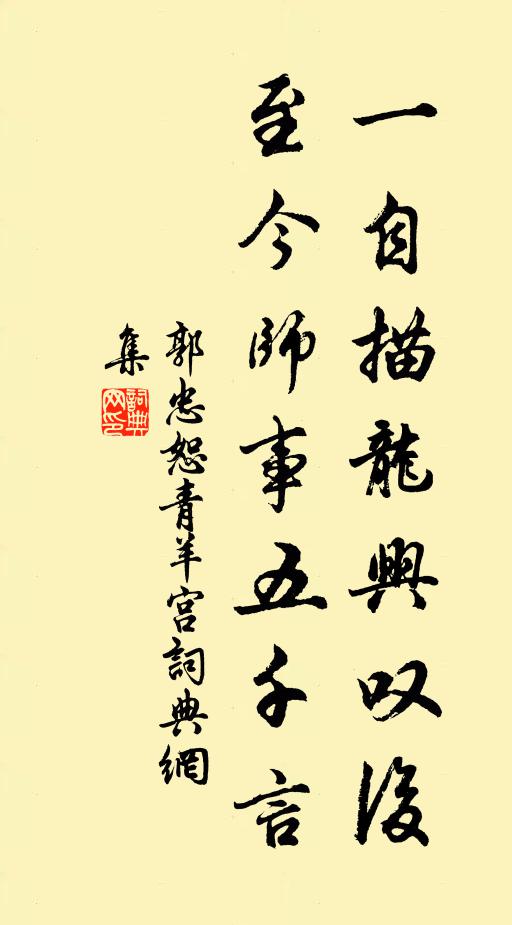 一自描龍興叹後
至今師事五千言
郭忠恕青羊宮詞典網
集
詞典
网印